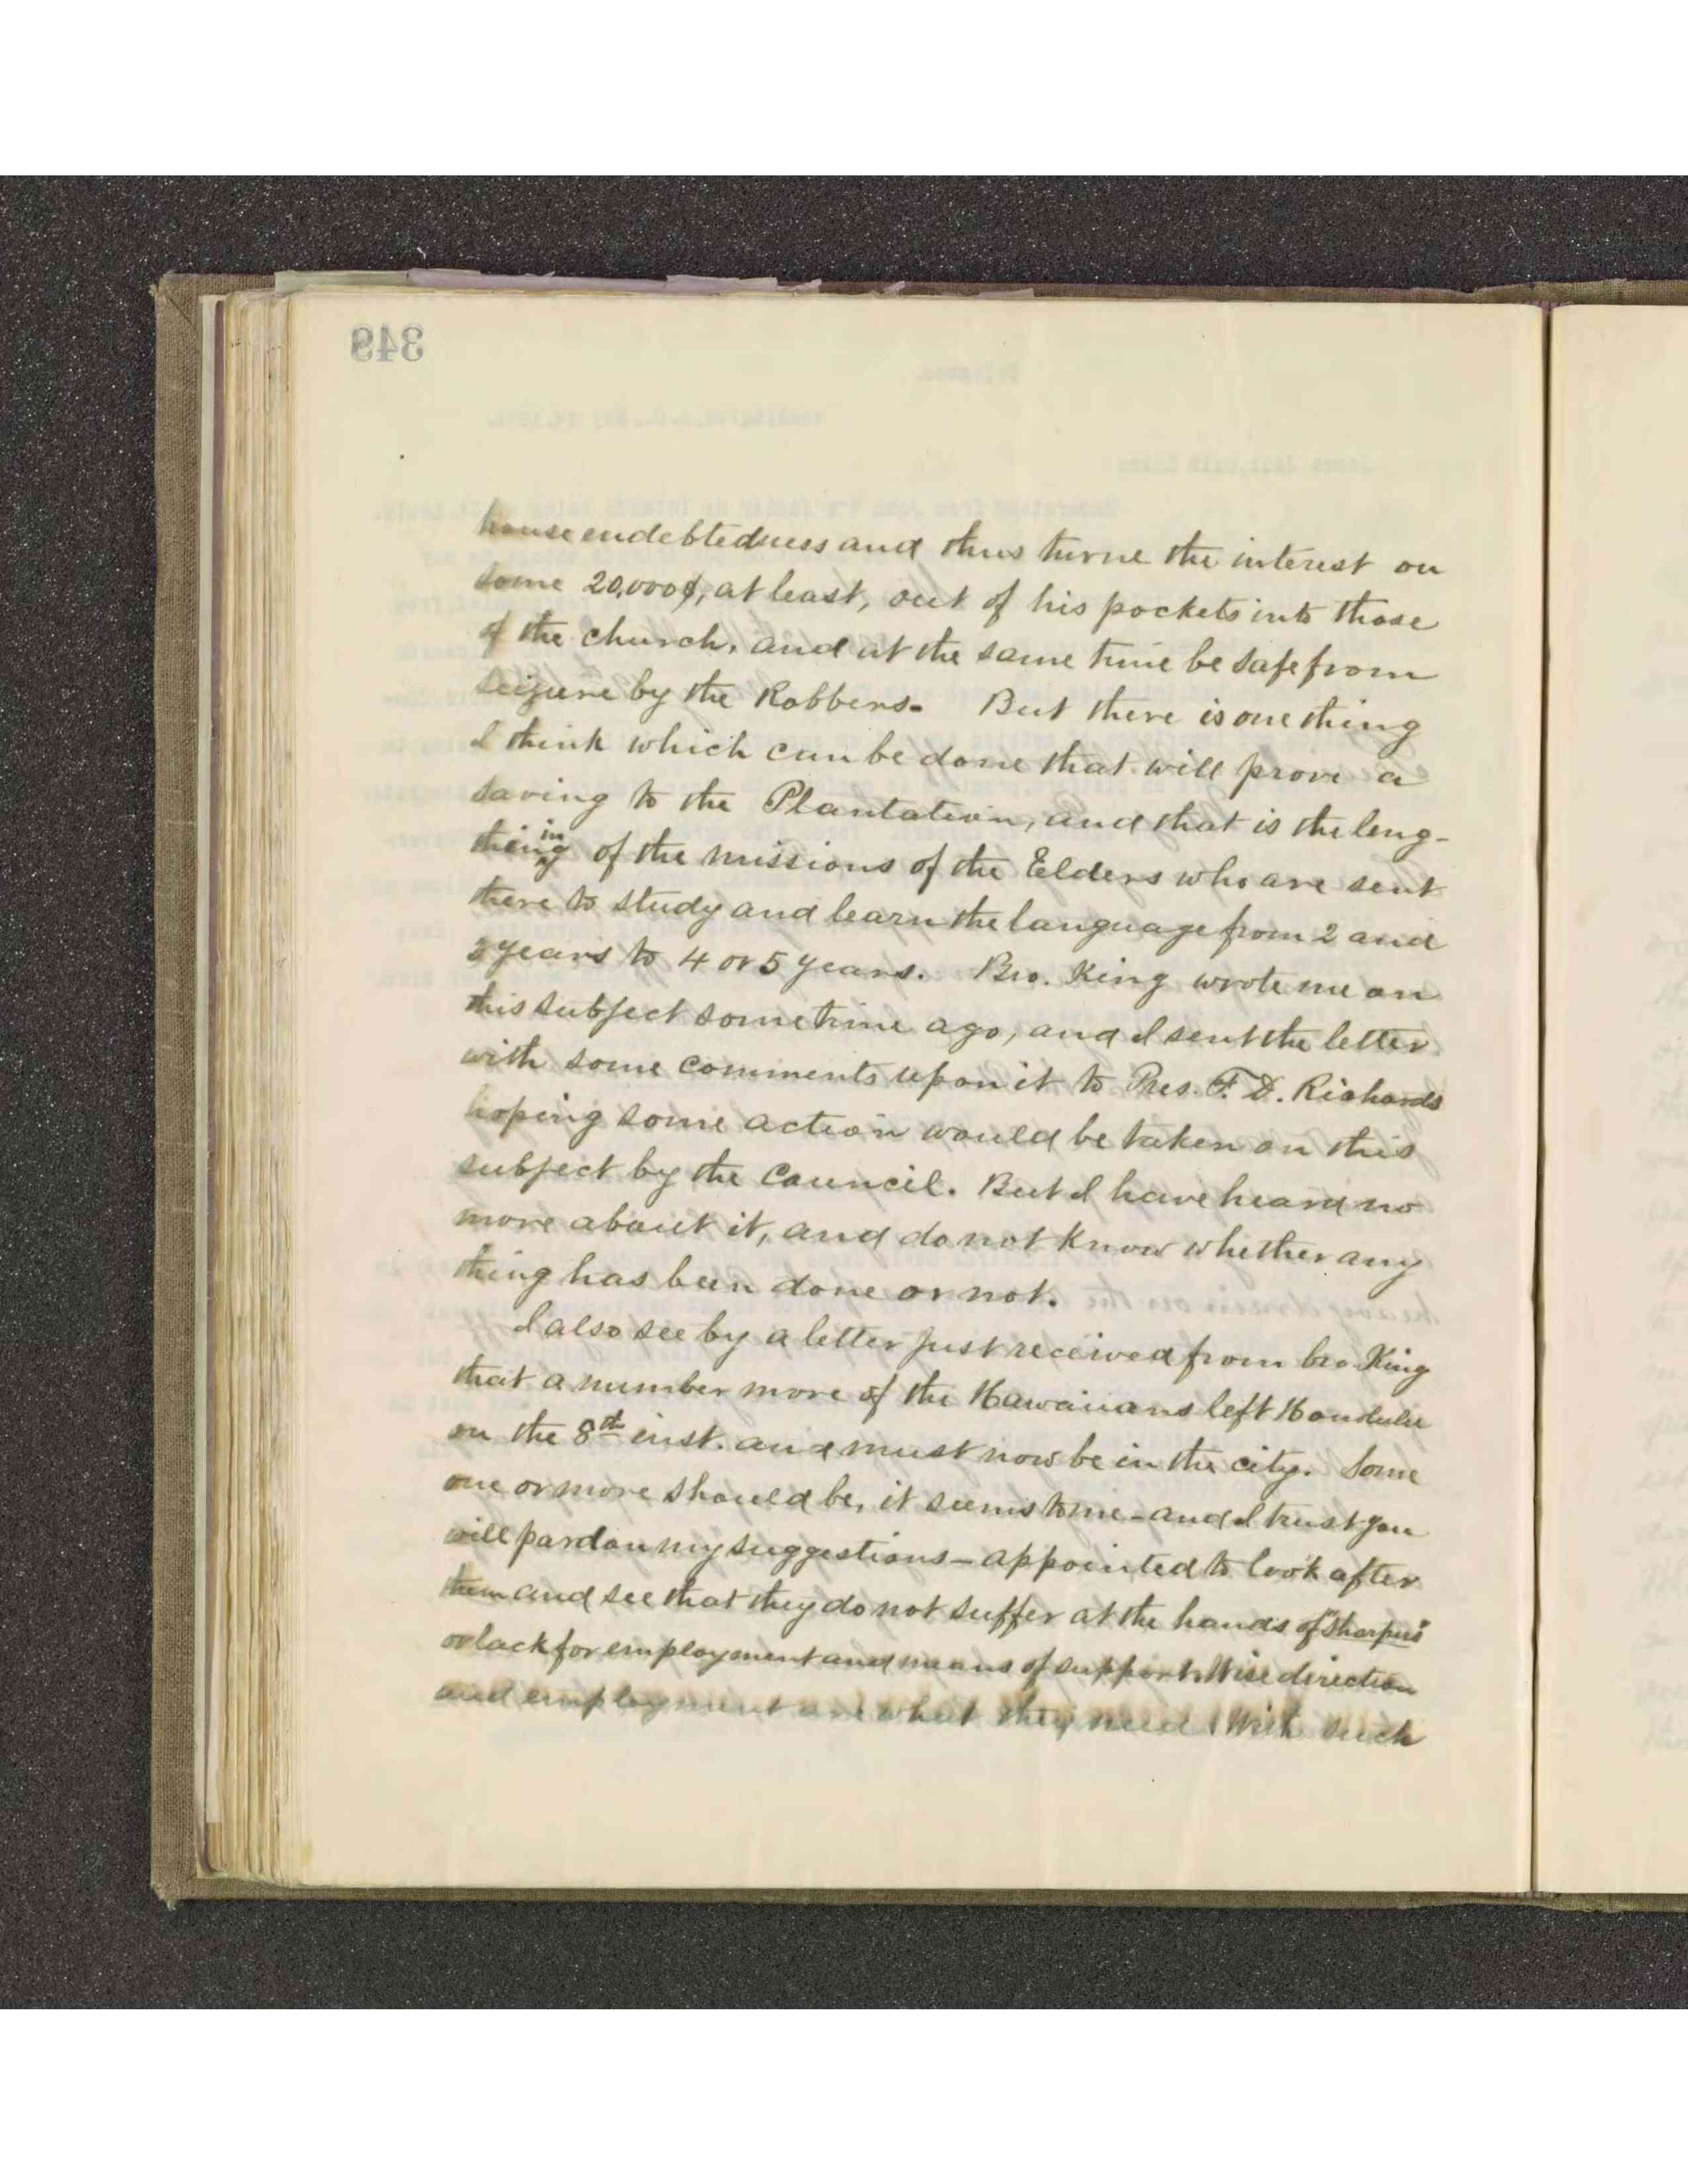 349
house endebtedness and thus turne the interest on
some 20,000$, at least, out of his pockets into those
of the church, and at the same time be safe from
seizure by the Robbers. But there is one thing
I think which can be done that will prove a
saving to the Plantation, and that is the leng-
thening of the missions of the Elders who are sent
there to study and learn the language from 2 and
3 years to 4 or 5 years. Bro. King wrote me on
this subject sometime ago, and I sent the letter
with some comments upon it to Pres. F. D. Richards
hoping some action would be taken on this
subject by the Council. But I have heard no
more about it, and do not know whether any
thing has been done or not.
I also see by a letter just received from bro. King
that a number more of the Hawaiians left Honolulu
on the 8th inst. and must now be in the city. Some
one or more should be, it seems to me - and I trust you
will pardon my suggestions - appointed to look after
them and see that they do not suffer at the hands of "Sharpers"
or lack for employment and means of support. Wise direction
and employment are what they need. With such